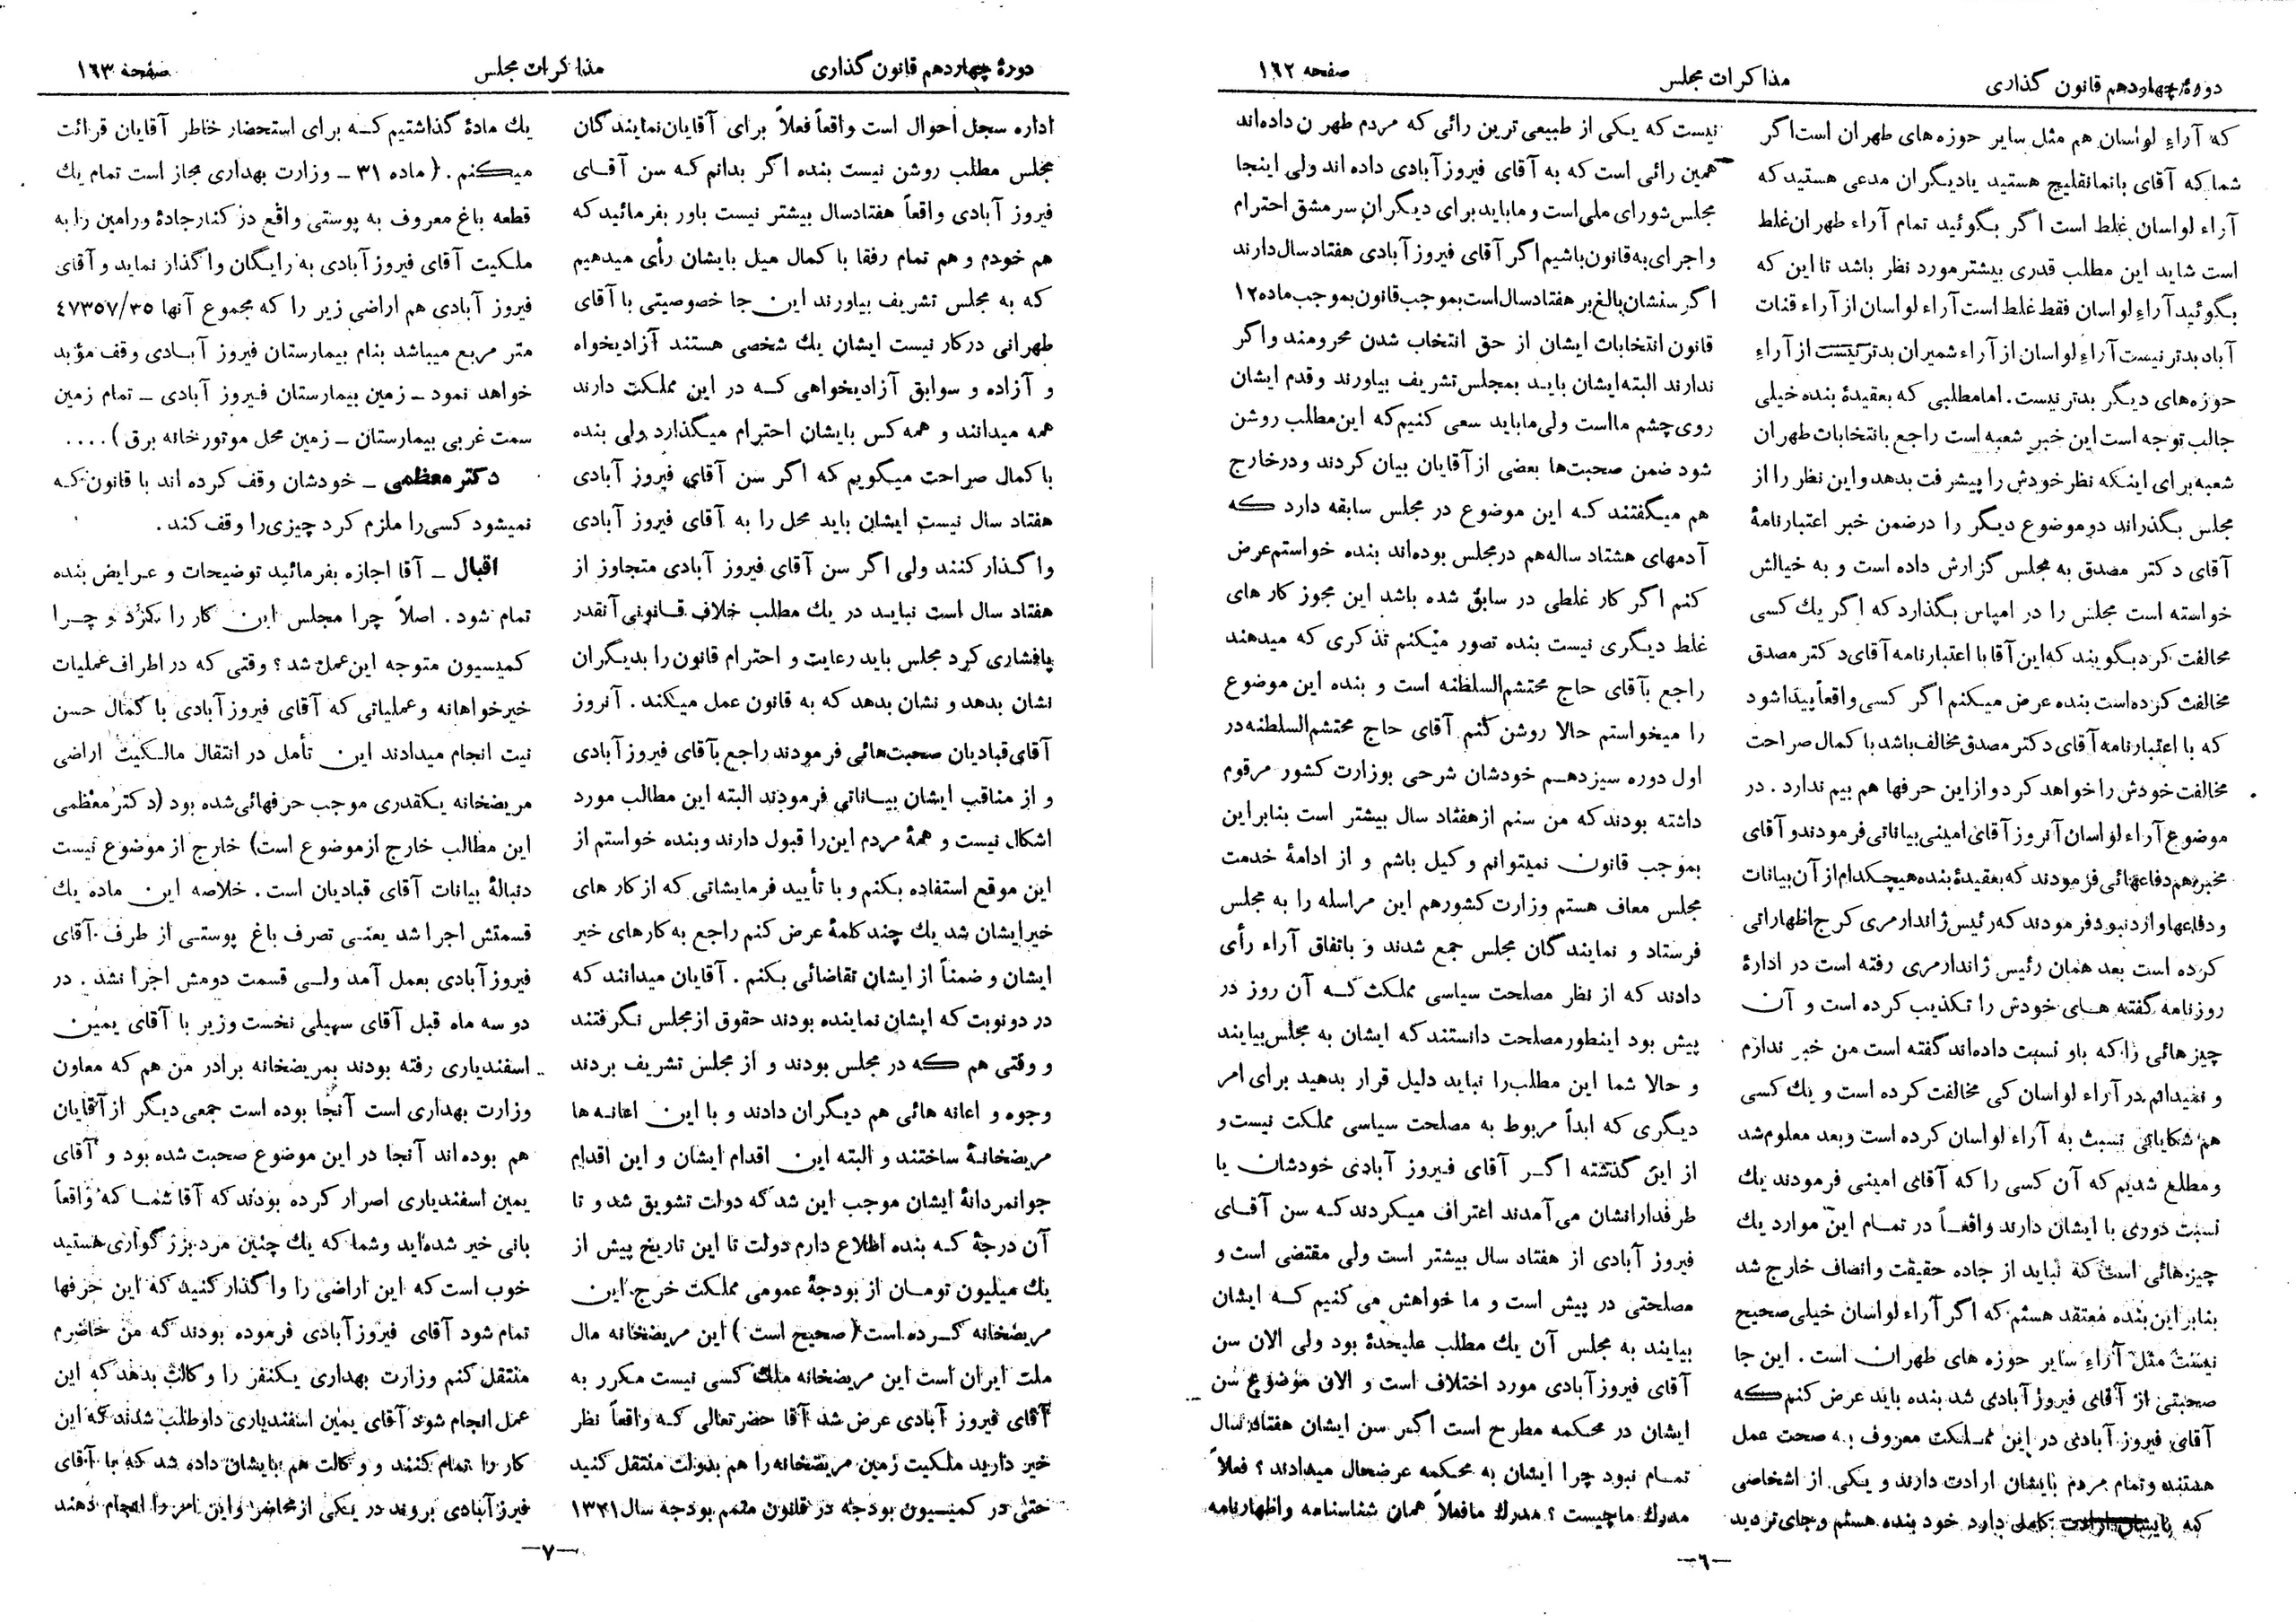 دورهٔ چهاردهم قانون گذاری
مذاکرات مجلس
صفحه ۱۶۲
که آراء لواسان هم مثل سایر حوزه های طهران است اگر
شما که آقای بانمانقلیج هستید یادیگران مدعی هستید که
آراء لواسان غلط است اگر بگوئید تمام آراء طهران غلط
است شاید این مطلب قدری بیشتر مورد نظر باشد تا این که
بگوئید آراء لواسان فقط غلط است آراء لواسان از آراء قنات
آباد بدتر نیست آراء لواسان از آراء شمیران بدتر نیست از آراء
حوزه‌های دیگر بدتر نیست. اما مطلبی که بعقیدهٔ بنده خیلی
جالب توجه است این خبر شعبه است راجع بانتخابات طهران
شعبه برای اینکه نظر خودش را پیشرفت بدهد واین نظر را از
مجلس بگذراند دو موضوع دیگر را در ضمن خبر اعتبارنامهٔ
آقای دکتر مصدق به مجلس گزارش داده است و به خیالش
خواسته است مجلس را در امپاس بگذارد که اگر یك کسی
مخالفت کرد بگویند که این آقا با اعتبارنامه آقای دکتر مصدق
مخالفت کرده است بنده عرض میکنم اگر کسی واقعاً پیدا شود
که با اعتبارنامه آقای دکتر مصدق مخالف باشد با کمال صراحت
مخالفت خودش را خواهد کرد و از این حرفها هم بیم ندارد . در
موضوع آراء لواسان آنروز آقای امینی بیاناتی فرمودند و آقای
مخبر هم دفاعهائی فرمودند که بعقیدهٔ بنده هیچکدام از آن بیانات
و دفاعها وارد نبود فرمودند که رئیس ژاندارمری کرج اظهاراتی
کرده است بعد همان رئیس ژاندارمری رفته است در ادارهٔ
روزنامه گفته های خودش را تکذیب کرده است و آن
چیزهائی را که باو نسبت داده‌اند گفته است من خبر ندارم
و نمیدانم در آراء لواسان کی مخالفت کرده است و یك کسی
هم شکایاتی نسبت به آراء لواسان کرده است و بعد معلوم شد
و مطلع شدیم که آن کسی را که آقای امینی فرمودند یك
نسبت دوری با ایشان دارند واقعاً در تمام این موارد یك
چیزهائی است که نباید از جاده حقیقت و انصاف خارج شد
بنابراین بنده معتقد هستم که اگر آراء لواسان خیلی صحیح
نیست مثل آراء سایر حوزه های طهران است . این جا
صحبتی از آقای فیروز آبادی شد بنده باید عرض کنم که
آقای فیروز آبادی در این مملکت معروف به صحت عمل
هستند و تمام مردم بایشان ارادت دارند و یکی از اشخاصی
که بایشان ارادت کامل دارد خود بنده هستم و جای تردید
نیست که یکی از طبیعی ترین رائی که مردم طهرن داده‌اند
همین رائی است که به آقای فیروز آبادی داده اند ولی اینجا
مجلس شورای ملی است و ما باید برای دیگران سرمشق احترام
و اجرای به قانون باشیم اگر آقای فیروز آبادی هفتاد سال دارند
اگر سنشان بالغ بر هفتاد سال است بموجب قانون بموجب ماده ۱۲
قانون انتخابات ایشان از حق انتخاب شدن محرومند و اگر
ندارند البته ایشان باید بمجلس تشریف بیاورند و قدم ایشان
روی چشم مااست ولی ما باید سعی کنیم که این مطلب روشن
شود ضمن صحبت‌ها بعضی از آقایان بیان کردند و در خارج
هم میگفتند که این موضوع در مجلس سابقه دارد که
آدمهای هشتاد ساله هم در مجلس بوده‌اند بنده خواستم عرض
کنم اگر کار غلطی در سابق شده باشد این مجوز کار های
غلط دیگری نیست بنده تصور میکنم تذکری که میدهند
راجع بآقای حاج محتشم السلطنه است و بنده این موضوع
را میخواستم حالا روشن کنم آقای حاج محتشم السلطنه در
اول دوره سیزدهم خودشان شرحی بوزارت کشور مرقوم
داشته بودند که من سنم از هفتاد سال بیشتر است بنابراین
بموجب قانون نمیتوانم وکیل باشم و از ادامهٔ خدمت
مجلس معاف هستم وزارت کشور هم این مراسله را به مجلس
فرستاد و نمایندگان مجلس جمع شدند و باتفاق آراء رأی
دادند که از نظر مصلحت سیاسی مملکت که آن روز در
پیش بود اینطور مصلحت دانستند که ایشان به مجلس بیایند
و حالا شما این مطلب را نباید دلیل قرار بدهید برای امر
دیگری که ابداً مربوط به مصلحت سیاسی مملکت نیست و
از این گذشته اگر آقای فیروز آبادی خودشان یا
طرفدارانشان می آمدند اعتراف میکردند که سن آقای
فیروز آبادی از هفتاد سال بیشتر است ولی مقتضی است و
مصلحتی در پیش است و ما خواهش می کنیم که ایشان
بیایند به مجلس آن یك مطلب علیحدهٔ بود ولی الان سن
آقای فیروز آبادی مورد اختلاف است و الان موضوع سن
ایشان در محکمه مطرح است اگر سن ایشان هفتاد سال
تمام نبود چرا ایشان به محکمه عرضحال میدادند ؟ فعلاً
مدرك ما چیست ؟ مدرك ما فعلاً همان شناسنامه و اظهارنامه
—۶—
دورهٔ چهاردهم قانون گذاری
مذاکرات مجلس
صفحه ۱۶۳
اداره سجل احوال است واقعاً فعلاً برای آقایان نمایندگان
مجلس مطلب روشن نیست بنده اگر بدانم که سن آقای
فیروز آبادی واقعاً هفتاد سال بیشتر نیست باور بفرمائید که
هم خودم و هم تمام رفقا با کمال میل بایشان رأی میدهیم
که به مجلس تشریف بیاورند این جا خصوصیتی با آقای
طهرانی درکار نیست ایشان یك شخصی هستند آزادیخواه
و آزاده و سوابق آزادیخواهی که در این مملکت دارند
همه میدانند و همه کس بایشان احترام میگذارد ولی بنده
با کمال صراحت میگویم که اگر سن آقای فیروز آبادی
هفتاد سال نیست ایشان باید محل را به آقای فیروز آبادی
واگذار کنند ولی اگر سن آقای فیروز آبادی متجاوز از
هفتاد سال است نباید در یك مطلب خلاف قانونی آنقدر
پافشاری کرد مجلس باید رعایت و احترام قانون را بدیگران
نشان بدهد و نشان بدهد که به قانون عمل میکند . آنروز
آقای قبادیان صحبت‌هائی فرمودند راجع بآقای فیروز آبادی
و از مناقب ایشان بیاناتی فرمودند البته این مطالب مورد
اشکال نیست و همهٔ مردم این را قبول دارند و بنده خواستم از
این موقع استفاده بکنم و با تأیید فرمایشاتی که از کار های
خیر ایشان شد یك چند کلمهٔ عرض کنم راجع به کارهای خیر
ایشان و ضمناً از ایشان تقاضائی بکنم . آقایان میدانند که
در دو نوبت که ایشان نماینده بودند حقوق از مجلس نگرفتند
و وقتی هم که در مجلس بودند و از مجلس تشریف بردند
وجوه و اعانه هائی هم دیگران دادند و با این اعانه ها
مریضخانهٔ ساختند و البته این اقدام ایشان و این اقدام
جوانمردانهٔ ایشان موجب این شد که دولت تشویق شد و تا
آن درجهٔ که بنده اطلاع دارم دولت تا این تاریخ پیش از
یك میلیون تومان از بودجهٔ عمومی مملکت خرج این
مریضخانه کرده است ( صحیح است ) این مریضخانه مال
ملت ایران است این مریضخانه ملك کسی نیست مکرر به
آقای فیروز آبادی عرض شد آقا حضرتعالی که واقعاً نظر
خیر دارید ملکیت زمین مریضخانه را هم بدولت منتقل کنید
حتی در کمیسیون بودجه در قانون متمم بودجه سال ۱۳۲۱
یك مادهٔ گذاشتیم که برای استحضار خاطر آقایان قرائت
میکنم . ( ماده ۳۱ ـ وزارت بهداری مجاز است تمام یك
قطعه باغ معروف به پوستی واقع در کنار جادهٔ ورامین را به
ملکیت آقای فیروز آبادی به رایگان واگذار نماید و آقای
فیروز آبادی هم اراضی زیر را که مجموع آنها ۴۷۳۵۷/۳۵
متر مربع میباشد بنام بیمارستان فیروز آبادی وقف مؤبد
خواهد نمود ـ زمین بیمارستان فیروز آبادی ـ تمام زمین
سمت غربی بیمارستان ـ زمین محل موتورخانه برق ) ....
دکتر معظمی ـ خودشان وقف کرده اند با قانون که
نمیشود کسی را ملزم کرد چیزی را وقف کند .
اقبال ـ آقا اجازه بفرمائید توضیحات و عرایض بنده
تمام شود . اصلاً چرا مجلس این کار را بکرد و چرا
کمیسیون متوجه این عمل شد ؟ وقتی که در اطراف عملیات
خیرخواهانه و عملیاتی که آقای فیروز آبادی با کمال حسن
نیت انجام میدادند این تأمل در انتقال مالکیت اراضی
مریضخانه یکقدری موجب حرفهائی شده بود (دکتر معظمی
این مطالب خارج از موضوع است) خارج از موضوع نیست
دنبالهٔ بیانات آقای قبادیان است . خلاصه این ماده یك
قسمتش اجرا شد یعنی تصرف باغ پوستی از طرف آقای
فیروز آبادی بعمل آمد ولی قسمت دومش اجرا نشد . در
دو سه ماه قبل آقای سهیلی نخست وزیر با آقای یمین
اسفندیاری رفته بودند بمریضخانه برادر من هم که معاون
وزارت بهداری است آنجا بوده است جمعی دیگر از آقایان
هم بوده اند آنجا در این موضوع صحبت شده بود و آقای
یمین اسفندیاری اصرار کرده بودند که آقا شما که واقعاً
بانی خیر شده‌اید و شما که یك چنین مرد بزرگواری هستید
خوب است که این اراضی را واگذار کنید که این حرفها
تمام شود آقای فیروز آبادی فرموده بودند که من حاضرم
منتقل کنم وزارت بهداری یکنفر را وکالت بدهد که این
عمل انجام شود آقای یمین اسفندیاری داوطلب شدند که این
کار را تمام کنند و وکالت هم بایشان داده شد که با آقای
فیروز آبادی بروند در یکی از محاضر و این امر را انجام دهند
—۷—